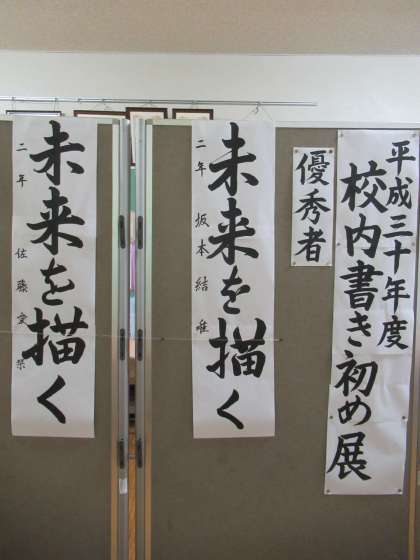 平成三十年度
校内書き初め展
優秀者
未来を描く
二年 坂本結唯
未来を描く
二年 佐藤愛栞